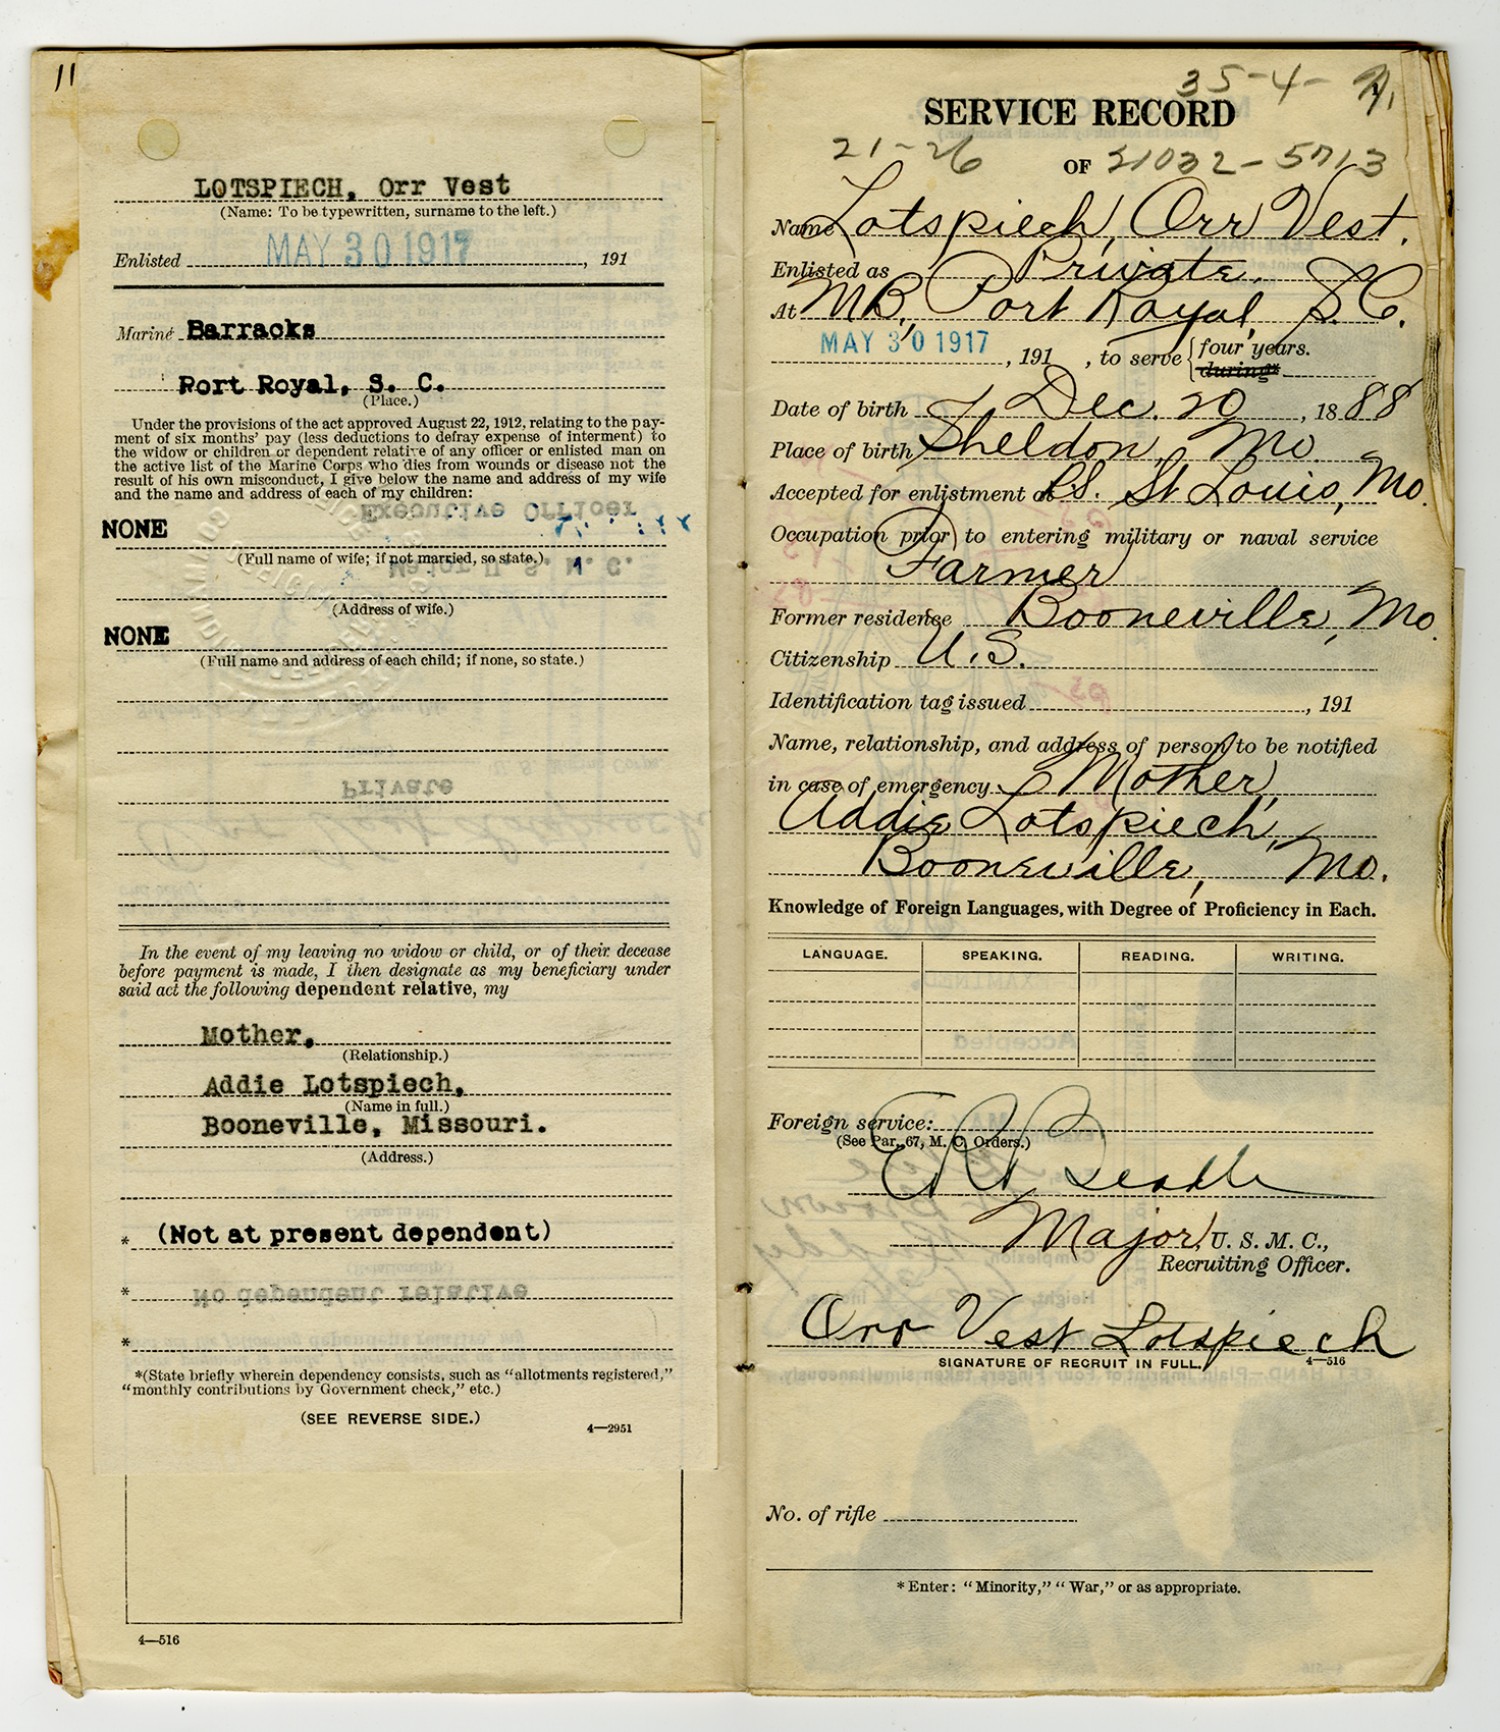 11
LOTSPIECH, Orr Vest
(Name: To be typewritten, surname to the left.)
Enlisted MAY 30 1917, 191
Marine Barracks
Port Royal, S. C.
(Place.)
Under the provisions of the act approved August 22, 1912, relating to the pay-
ment of six months' pay (less deductions to defray expense of interment) to
the widow or children or dependent relative of any officer or enlisted man on
the active list of the Marine Corps who dies from wounds or disease not the
result of his own misconduct, I give below the name and address of my wife
and the name and address of each of my children:
Executive Officer
NONE
(Full name of wife; if not married, so state.)
Major U. S. M. C.
(Address of wife.)
NONE
(Full name and address of each child; if none, so state.)
Private
In the event of my leaving no widow or child, or of their decease
before payment is made, I then designate as my beneficiary under
said act the following dependent relative, my
Mother,
(Relationship.)
Addie Lotspiech,
(Name in full.)
Booneville, Missouri.
(Address.)
* (Not at present dependent)
* No dependent relative
*
*(State briefly wherein dependency consists, such as "allotments registered,"
"monthly contributions by Government check," etc.)
(SEE REVERSE SIDE.)
4—2951
4—516
35-4-
SERVICE RECORD
21-26
OF 21032-5713
Name Lotspiech, Orr Vest.
Enlisted as Private,
At MB, Port Royal, S.C.
MAY 30 1917, 191 , to serve {four years.
during*
Date of birth Dec. 20, 1888
Place of birth Sheldon, Mo.
Accepted for enlistment at RS. St Louis, Mo.
Occupation prior to entering military or naval service
Farmer
Former residence Booneville, Mo.
Citizenship U.S.
Identification tag issued , 191
Name, relationship, and address of person to be notified
in case of emergency Mother,
Addie Lotspiech,
Booneville, Mo.
Knowledge of Foreign Languages, with Degree of Proficiency in Each.
LANGUAGE. SPEAKING. READING. WRITING.
Foreign service:
(See Par. 67, M. C. Orders.)
Major, U. S. M. C.,
Recruiting Officer.
Orr Vest Lotspiech
SIGNATURE OF RECRUIT IN FULL. 4—516
No. of rifle
* Enter: "Minority," "War," or as appropriate.